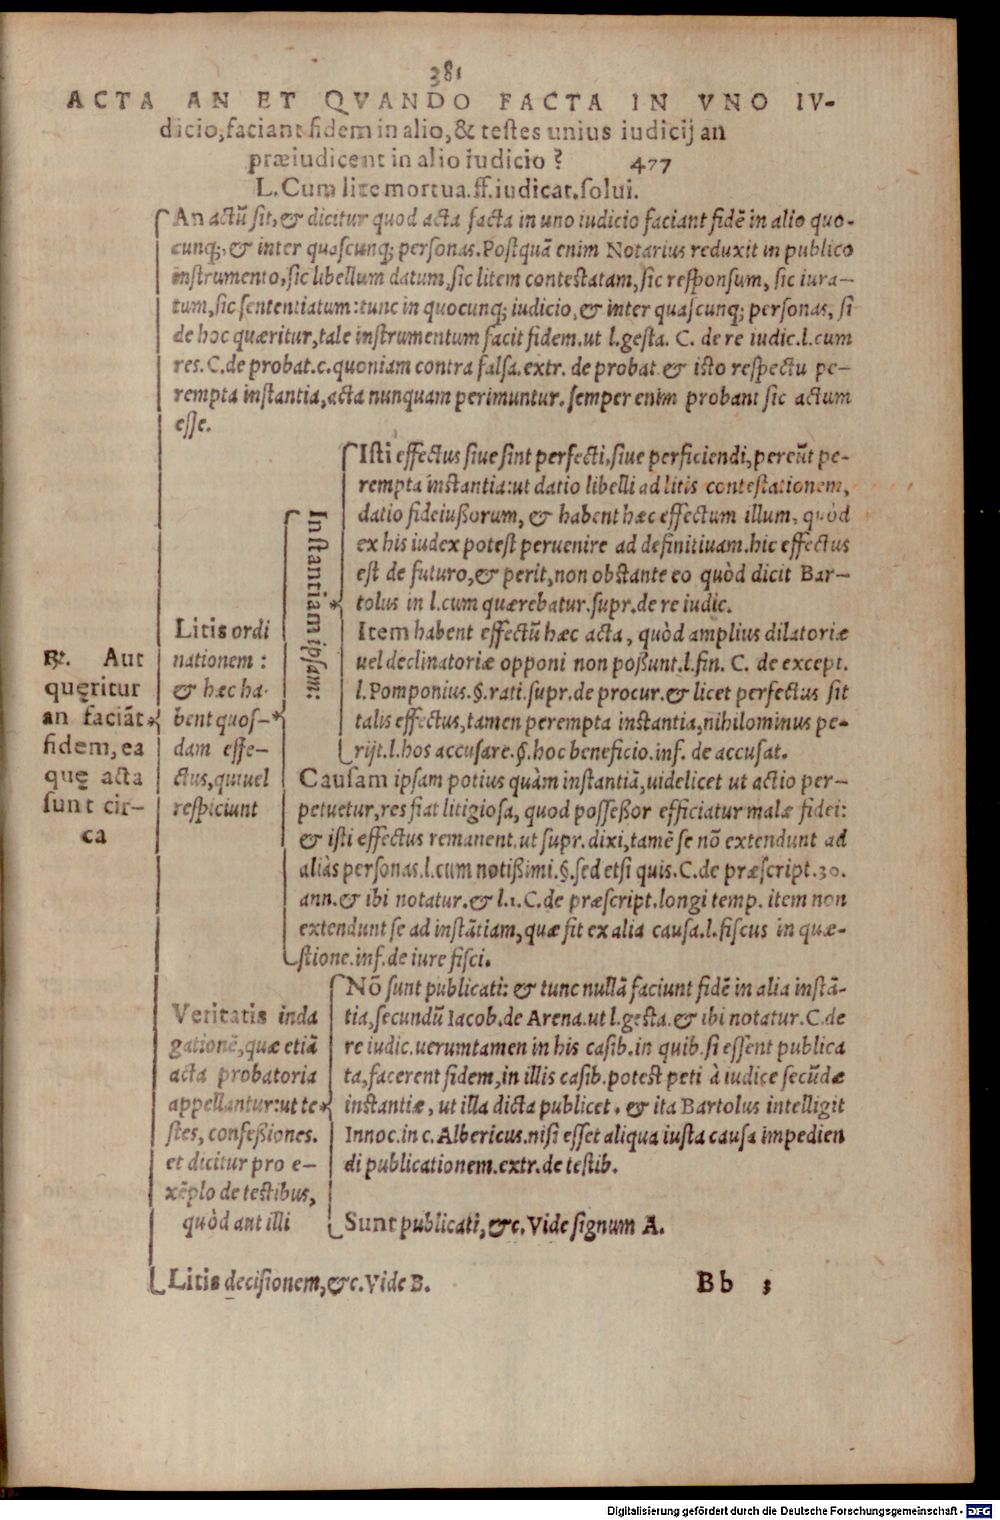 381
ACTA AN ET QVANDO FACTA IN VNO IV-
dicio, faciant fidem in alio, & testes unius iudicij an
præiudicent in alio iudicio? 477
L. Cum lite mortua. ff. iudicat. solui.
An actũ sit, & dicitur quod acta facta in uno iudicio faciant fidẽ in alio quo-
cunq;, & inter quascunq; personas. Postquã enim Notarius reduxit in publico
instrumento, sic libellum datum, sic litem contestatam, sic responsum, sic iura-
tum, sic sententiatum: tunc in quocunq; iudicio, & inter quascunq; personas, si
de hoc quæritur, tale instrumentum facit fidem. ut l. gesta. C. de re iudic. l. cum
res. C. de probat. c. quoniam contra falsa. extr. de probat. & isto respectu pe-
rempta instantia, acta nunquam perimuntur. semper enim probant sic actum
esse.
℞. Aut
quęritur
an faciãt
fidem, ea
quę acta
sunt cir-
ca
Litis ordi
nationem:
& hæc ha-
bent quos-
dam effe-
ctus, qui uel
respiciunt
Instantiam ipsam:
Isti effectus siue sint perfecti, siue perficiendi, pereũt pe-
rempta instantia: ut datio libelli ad litis contestationem,
datio fideiußorum, & habent hæc effectum illum, quòd
ex his iudex potest peruenire ad definitiuam. hic effectus
est de futuro, & perit, non obstante eo quòd dicit Bar-
tolus in l. cum quærebatur. supr. de re iudic.
Item habent effectũ hæc acta, quòd amplius dilatoriæ
uel declinatoriæ opponi non poßunt. l. fin. C. de except.
l. Pomponius. §. rati. supr. de procur. & licet perfectus sit
talis effectus, tamen perempta instantia, nihilominus pe-
rijt. l. hos accusare. §. hoc beneficio. inf. de accusat.
Causam ipsam potius quàm instantiã, uidelicet ut actio per-
petuetur, res fiat litigiosa, quod posseßor efficiatur malæ fidei:
& isti effectus remanent. ut supr. dixi, tamẽ se nõ extendunt ad
aliàs personas. l. cum notißimi. §. sed etsi quis. C. de præscript. 30.
ann. & ibi notatur. & l. 1. C. de præscript. longi temp. item non
extendunt se ad instãtiam, quæ fit ex alia causa. l. fiscus in quæ-
stione. inf. de iure fisci.
Veritatis inda
gationẽ, quæ etiã
acta probatoria
appellantur: ut te
stes, confeßiones.
et dicitur pro e-
xẽplo de testibus,
quòd aut illi
Nõ sunt publicati: & tunc nullã faciunt fidẽ in alia instã-
tia, secundũ Iacob. de Arena. ut l. gesta. & ibi notatur. C. de
re iudic. uerumtamen in his casib. in quib. si essent publica
ta, facerent fidem, in illis casib. potest peti à iudice secũdæ
instantiæ, ut illa dicta publicet. & ita Bartolus intelligit
Innoc. in c. Albericus. nisi esset aliqua iusta causa impedien
di publicationem. extr. de testib.
Sunt publicati, &c. Vide signum A.
Litis decisionem, &c. Vide B.
Bb 3
Digitalisierung gefördert durch die Deutsche Forschungsgemeinschaft - DFG